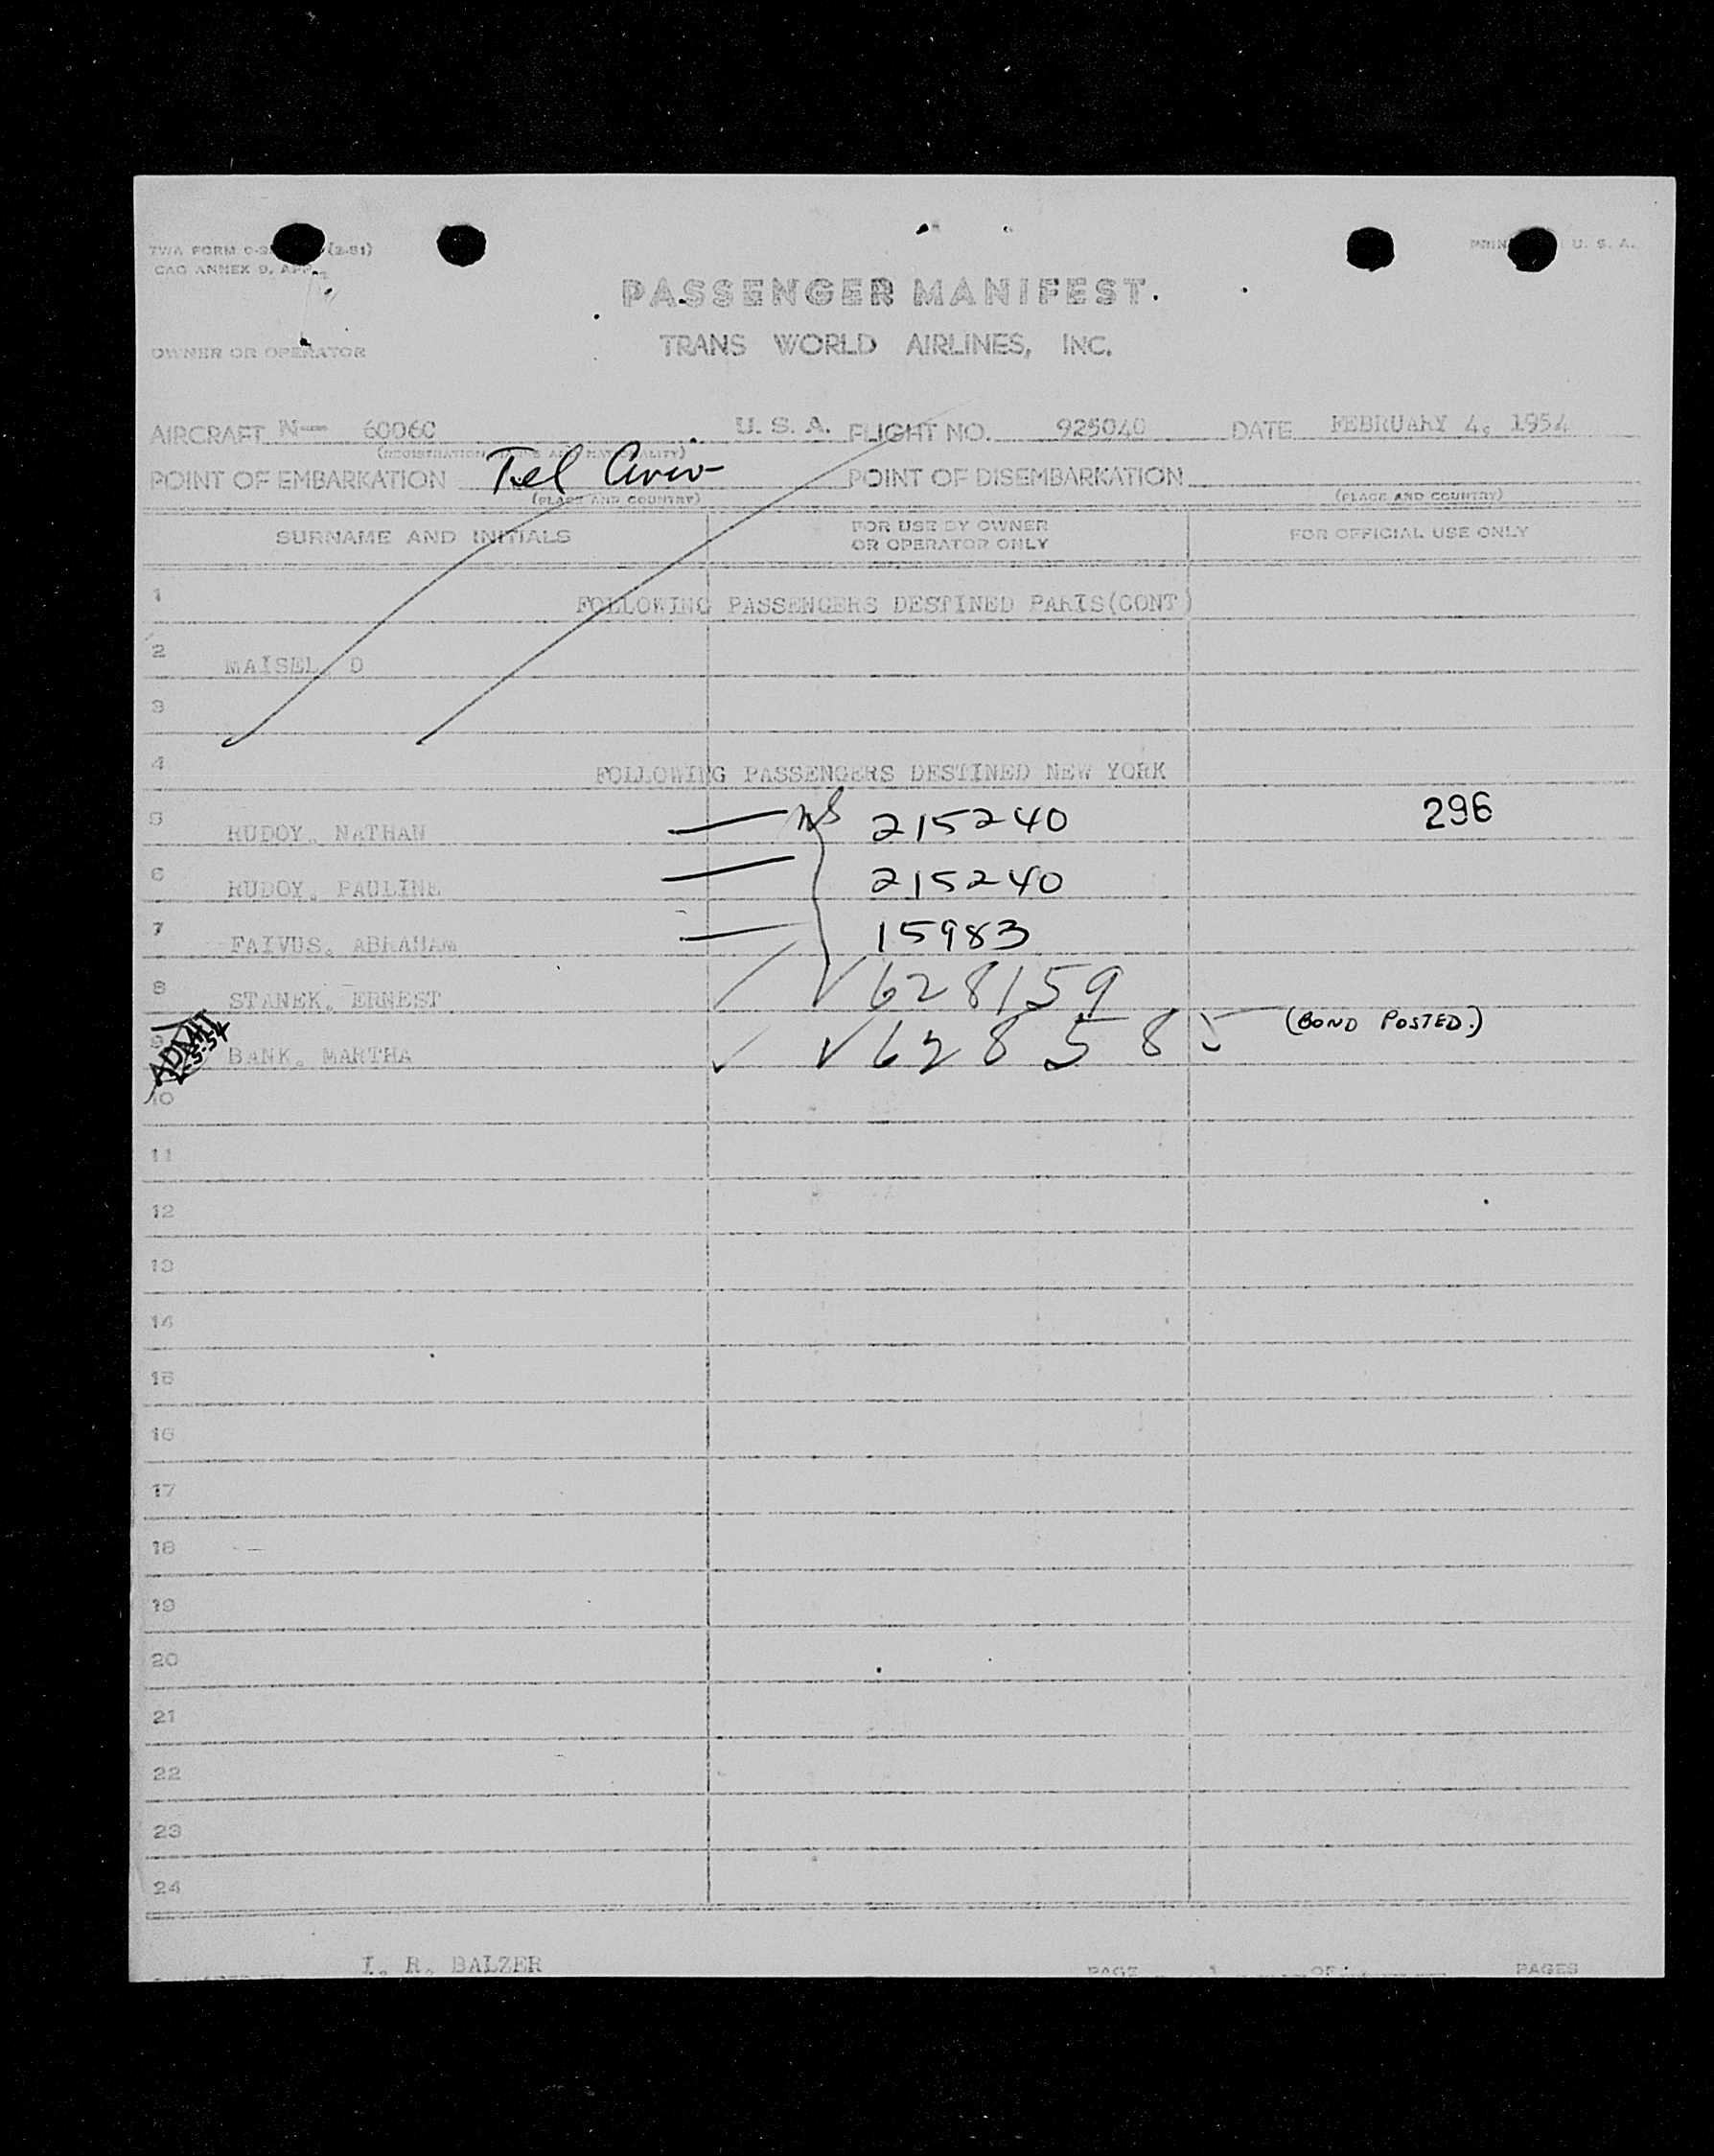 TWA FORM (2-51) PRIN U. S. A.
CAO ANNEX 9, APP.
PASSENGER MANIFEST.
OWNER OR OPERATOR TRANS WORLD AIRLINES, INC.
AIRCRAFT N- 60060 U. S. A. FLIGHT NO. 925040 DATE FEBRUARY 4, 1954
POINT OF EMBARKATION Tel Aviv POINT OF DISEMBARKATION
(PLACE AND COUNTRY) (PLACE AND COUNTRY)
SURNAME AND INITIALS FOR USE BY OWNER OR OPERATOR ONLY FOR OFFICIAL USE ONLY
1 FOLLOWING PASSENGERS DESTINED PARIS(CONT)
2 MAISEL D
3
4 FOLLOWING PASSENGERS DESTINED NEW YORK
5 RUDOY, NATHAN 215240 296
6 RUDOY, PAULINE 215240
7 FAIVUS, ABRAHAM 15983
8 STANEK, ERNEST 628159
9 ADMIT 2-5-54 BANK, MARTHA 628585 (BOND POSTED.)
10
11
12
13
14
15
16
17
18
19
20
21
22
23
24
I. R. BALZER PAGE 1 OF PAGES